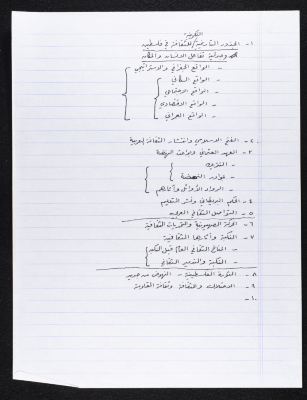 التكوينية
١- الجذور التاريخية / للثقافة في فلسطين
وجدلية تفاعل الانسان والمكان
- الواقع الجغرافي والاستراتيجي
- الواقع السكاني
- الواقع الاجتماعي
- الواقع الاقتصادي
- الواقع العمراني
٢- الفتح الاسلامي وانتشار الثقافة العربية
٣- العهد العثماني وبواعث النهضة
- بوادر النهضة
- الرواد الأوائل وآثارهم
٤- الحكم البريطاني ونشر التعليم
٥- التواصل الثقافي العربي
٦- الحركة الصهيونية والتحديات الثقافية
٧- النكبة وآثارها الثقافية
- المناخ الثقافي العام قبل النكبة
- النكبة والتدمير الثقافي
٨- الثورة الفلسطينية - النهوض من جديد
٩- الاحتلال والثقافة وثقافة المقاومة
١٠-